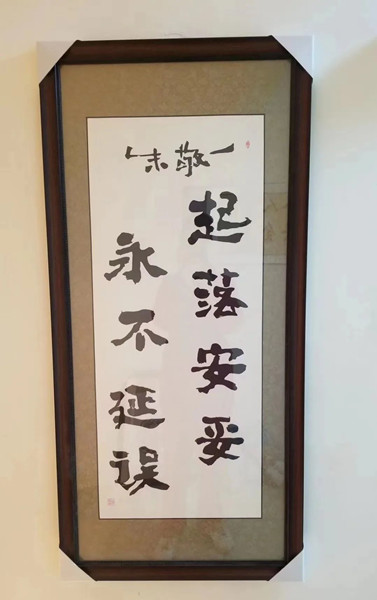 朱敬一
起落安妥
永不延误